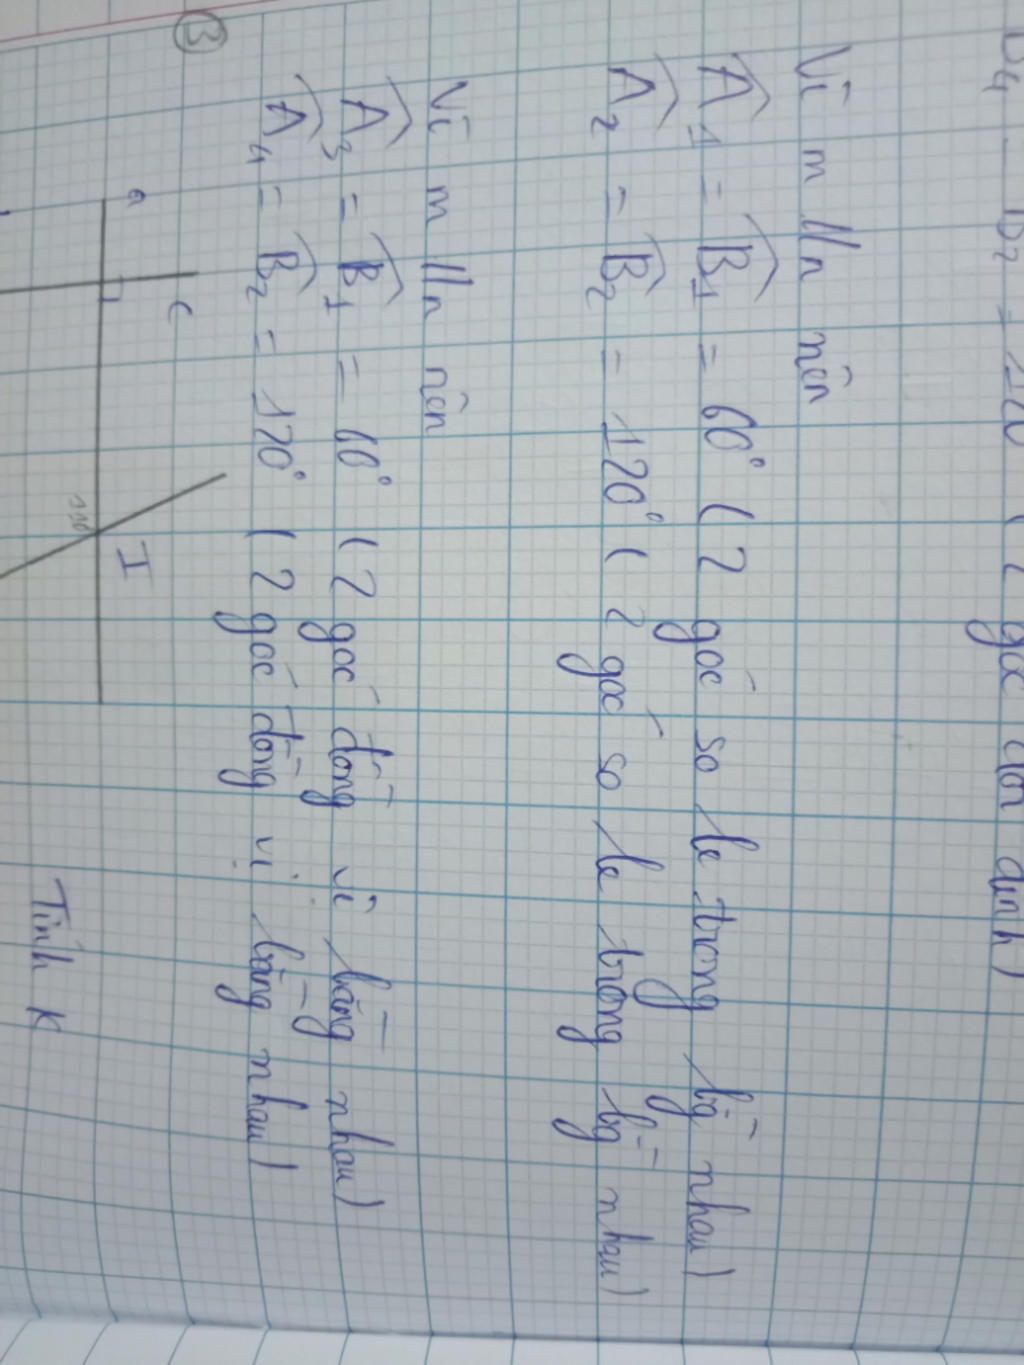 (2 góc đối đỉnh)
Vì m // n nên
Â1 = B̂1 = 60° (2 góc so le trong bg̀ nhau)
Â2 = B̂2 = 120° (2 góc so le trong bg̀ nhau)
Vì m // n nên
Â3 = B̂1 = 60° (2 góc đồng vì bằng nhau)
Â4 = B̂2 = 120° (2 góc đồng vị bằng nhau)
③
a
c
I
Tính K